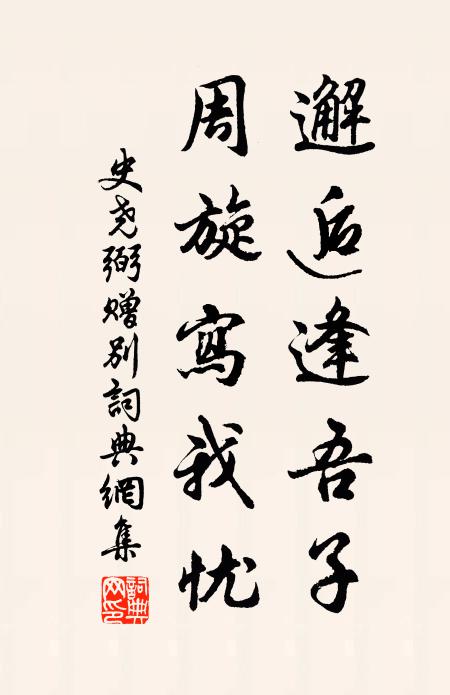 邂逅逢吾子
周旋寫我忧
史尧弼赠别詞典網集
詞典網印